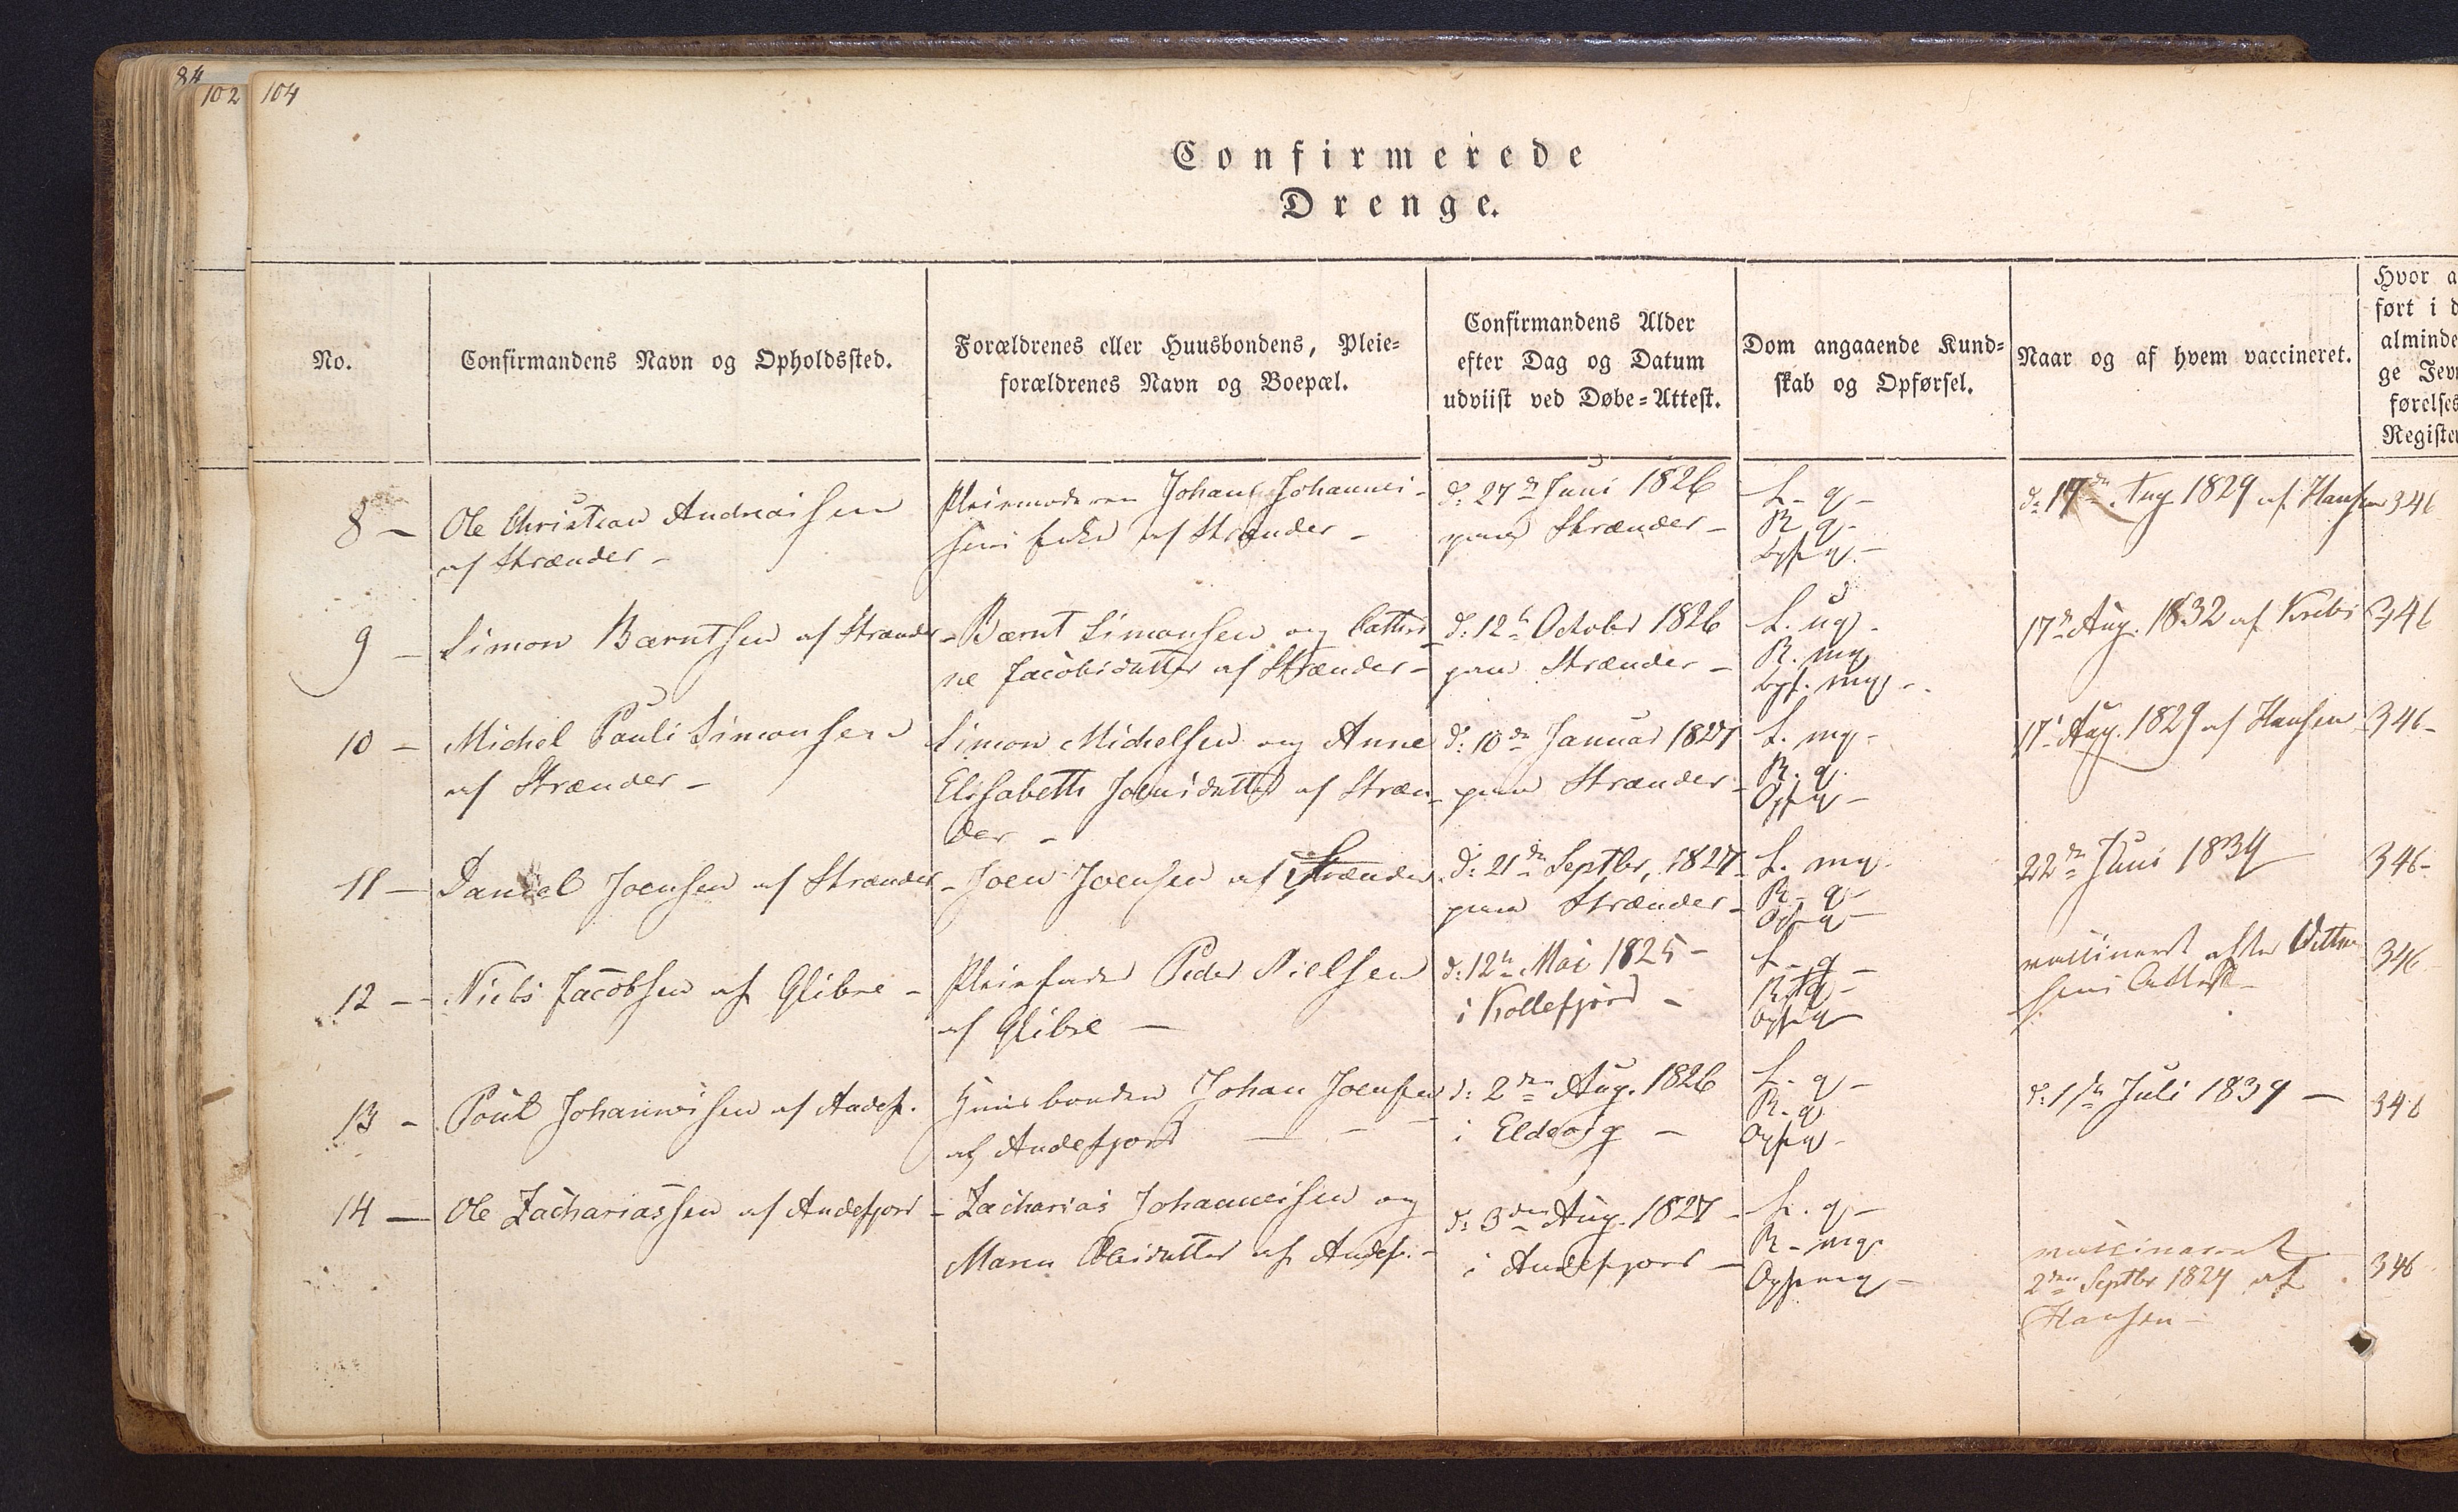 84
102
104
Confirmerede
Drenge.
No.
Confirmandens Navn og Opholdssted.
Forældrenes eller Huusbondens, Pleie=
forældrenes Navn og Boepæl.
Confirmandens Alder
efter Dag og Datum
udviist ved Døbe=Attest.
Dom angaaende Kund=
skab og Opførsel.
Naar og af hvem vaccineret.
Hvor a
ført i d
alminde
ge Jevn
førelses
Register
8 - Ole Christian Andreassen
af Strænder -
Pleiemoderen Johan Johannes-
sens Enke af Strænder -
d: 27de Juni 1826
paa Strænder -
L - g -
R g -
Opf g -
d: 17de Aug 1829 af Hansen
346
9 - Simon Bærntsen af Strænder
- Bærnt Simonsen og Cathri
ne Jacobsdatter af Strænder -
d: 12te October 1826
paa Strænder -
L. ug -
R. mg
Opf. mg -
17de Aug. 1832 af Krebs
346
10 - Michel Pauli Simonsen
af Strænder -
Simon Michelsen og Anne
Elisabeth Joensdatter af Stræn
der -
d: 10de Januar 1827
paa Strænder -
L. mg -
R. g.
Opf g -
17 Aug. 1829 af Hansen
346 -
11 - Daniel Joensen af Strænder
- Joen Joensen af Strænder
d: 21de Septbr, 1827
paa Strænder -
L. mg.
R - g -
Opf g -
22de Juni 1839
346 -
12 - Niels Jacobsen af Glibre -
Pleiefader Peder Nielsen
af Glibre -
d: 12te Mai 1825 -
i Kollefjord -
L - g -
R g -
Opf g
vaccineret efter
sens Attest -
346
13 - Poul Johannesen af Andef.
Huusbonden Johan Joensen
af Andefjord - - -
d: 2den Aug. 1826
i -
L - g -
R - g
Opf g -
d: 1ste Juli 1839 -
346
14 - Ole Zachariassen af Andefjord
- Zacharias Johannesen og
Maren Olesdatter af Andef. -
d: 3den Aug. 1827 -
i Andefjord -
L. g -
R - mg.
Opf mg -
vaccineret
2den Septbr 1829 af
Hansen -
346